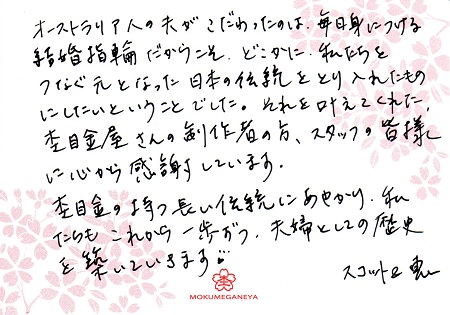 オーストラリア人の夫がこだわったのは、毎日身につける
結婚指輪だからこそ、どこかに、私たちを
つなぐ元となった日本の伝統をとり入れたもの
にしたいということでした。それを叶えてくれた、
杢目金屋さんの創作者の方、スタッフの皆様
に心から感謝しています。
杢目金の持つ長い伝統にあやかり、私
たちもこれから一歩ずつ、夫婦としての歴史
を築いていきます
スコット& 恵
MOKUMEGANEYA